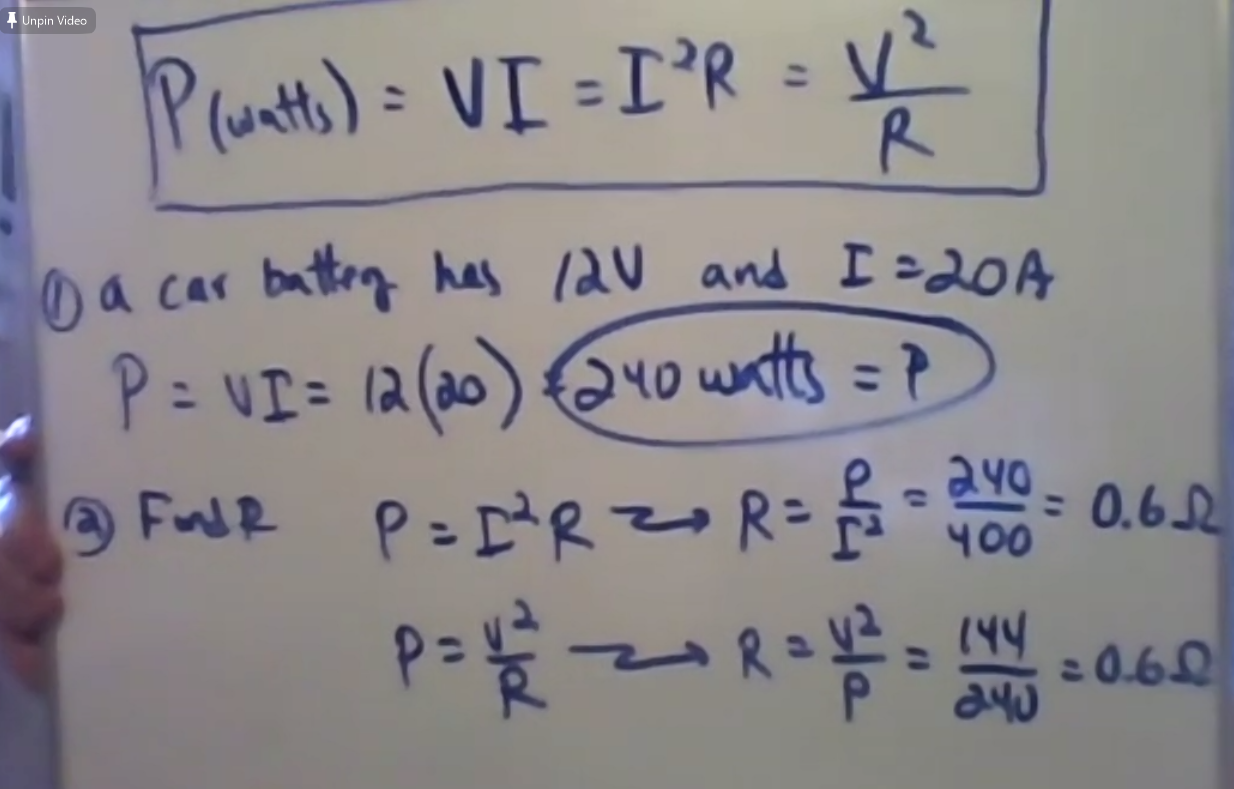 Unpin Video
P(watts) = VI = I²R = V²/R
① a car battery has 12V and I = 20A
P = VI = 12(20) = 240 watts = P
② Find R P = I²R → R = P/I² = 240/400 = 0.6Ω
P = V²/R → R = V²/P = 144/240 = 0.6Ω